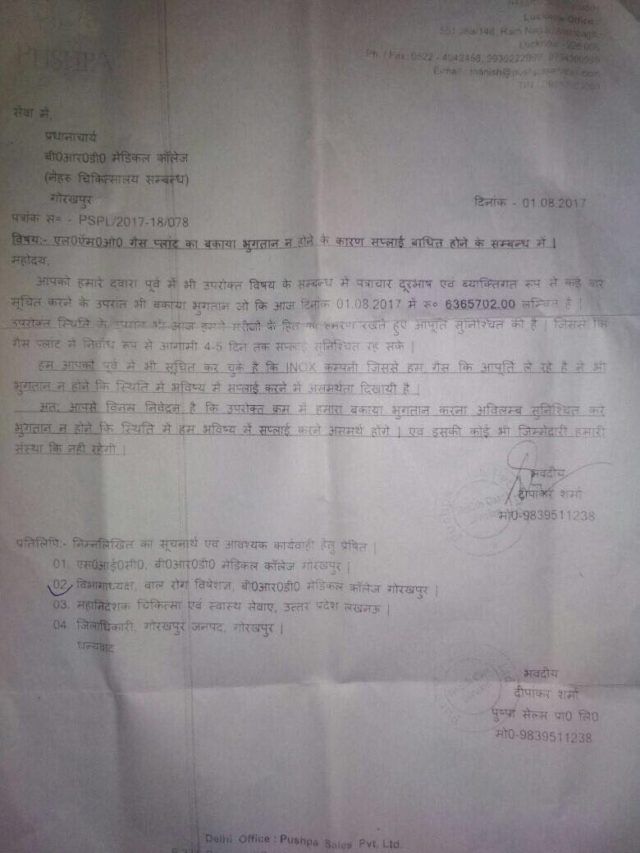 PUSHPA
Lucknow Office :
Lucknow - 226 005
Ph. / Fax : 0522 - 4042458,
सेवा में,
प्रधानाचार्य
बी0आर0डी0 मेडिकल कॉलेज
(नेहरु चिकित्सालय सम्बन्ध)
गोरखपुर
दिनांक - 01.08.2017
पत्रांक स० - PSPL/2017-18/078
विषय:- एल0एम0ओ0 गैस प्लांट का बकाया भुगतान न होने के कारण सप्लाई बाधित होने के सम्बन्ध में |
महोदय,
आपको हमारे द्वारा पूर्व में भी उपरोक्त विषय के सम्बन्ध में पत्राचार दूरभाष एवं व्यक्तिगत रूप से कई बार
सूचित करने के उपरांत भी बकाया भुगतान जो कि आज दिनांक 01.08.2017 में रू० 6365702.00 लम्बित है |
उपरोक्त स्थिति के उपरांत भी आज हमने मरीजों के हित का स्मरण रखते हुए आपूर्ति सुनिश्चित की है | जिससे कि
गैस प्लांट में निर्बाध रूप से आगामी 4-5 दिन तक सप्लाई सुनिश्चित रह सके |
हम आपको पूर्व में भी सूचित कर चुके है कि INOX कम्पनी जिससे हम गैस कि आपूर्ति ले रहे है ने भी
भुगतान न होने कि स्थिति में भविष्य में सप्लाई करने में असमर्थता दिखायी है |
अतः आपसे विनम्र निवेदन है कि उपरोक्त क्रम में हमारा बकाया भुगतान करना अविलम्ब सुनिश्चित करे
भुगतान न होने कि स्थिति में हम भविष्य में सप्लाई करने असमर्थ होंगे | एवं इसकी कोई भी जिम्मेदारी हमारी
संस्था कि नही रहेगी |
भवदीय
दीपांकर शर्मा
मो0-9839511238
प्रतिलिपि:- निम्नलिखित का सूचनार्थ एवं आवश्यक कार्यवाही हेतु प्रेषित |
01. एस0आई0सी0, बी0आर0डी0 मेडिकल कॉलेज गोरखपुर |
02. विभागाध्यक्ष, बाल रोग विषेशज्ञ, बी0आर0डी0 मेडिकल कॉलेज गोरखपुर |
03. महानिदेशक चिकित्सा एवं स्वास्थ सेवाए, उत्तर प्रदेश लखनऊ |
04. जिलाधिकारी, गोरखपुर जनपद, गोरखपुर |
धन्यवाद
भवदीय
दीपांकर शर्मा
पुष्पा सेल्स प्रा0 लि0
मो0-9839511238
Delhi Office : Pushpa Sales Pvt. Ltd.